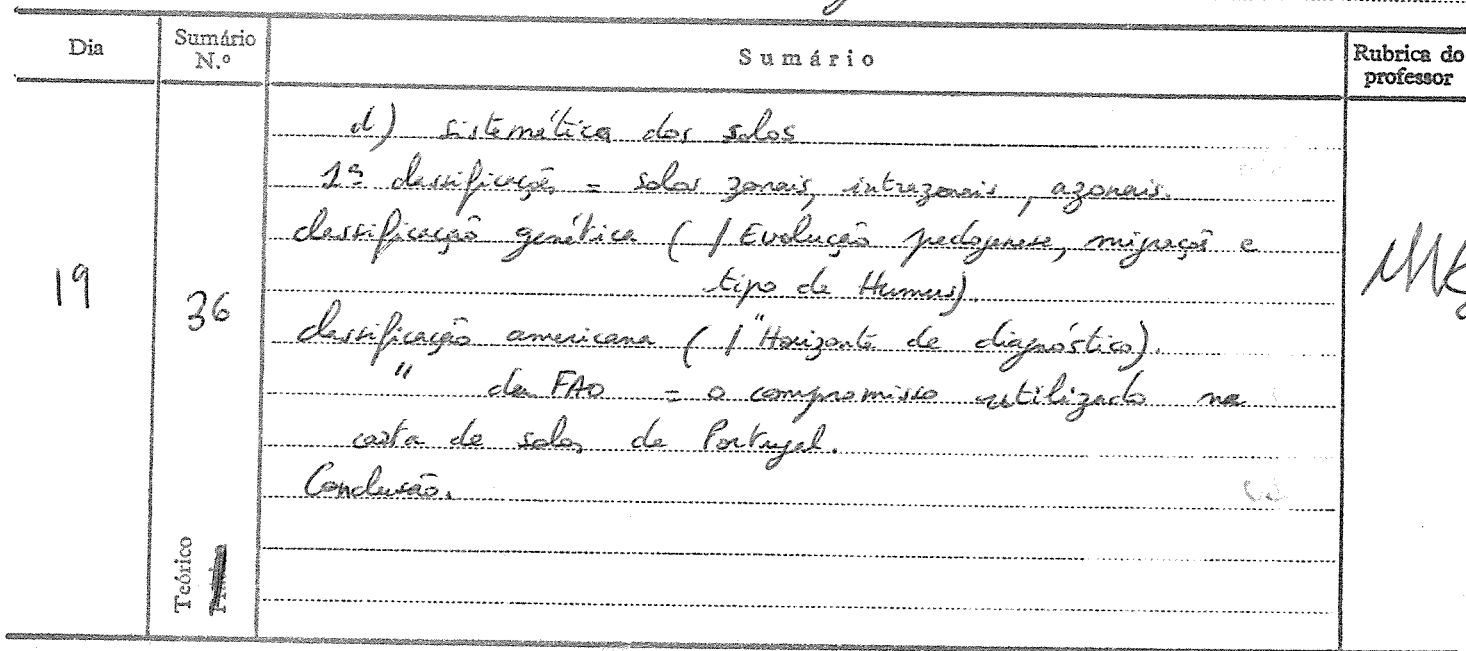 Dia
Sumário N.º
Sumário
Rubrica do professor
d) sistemática dos solos
1ª classificação = solos zonais, intrazonais, azonais.
classificação genética ( / Evolução pedogenese, migração e
tipo de Humus).
19
36
classificação americana ( / "Horizonte de diagnóstico).
" da FAO = o compromisso utilizado na
carta de solos de Portugal.
Conclusão.
Teórico